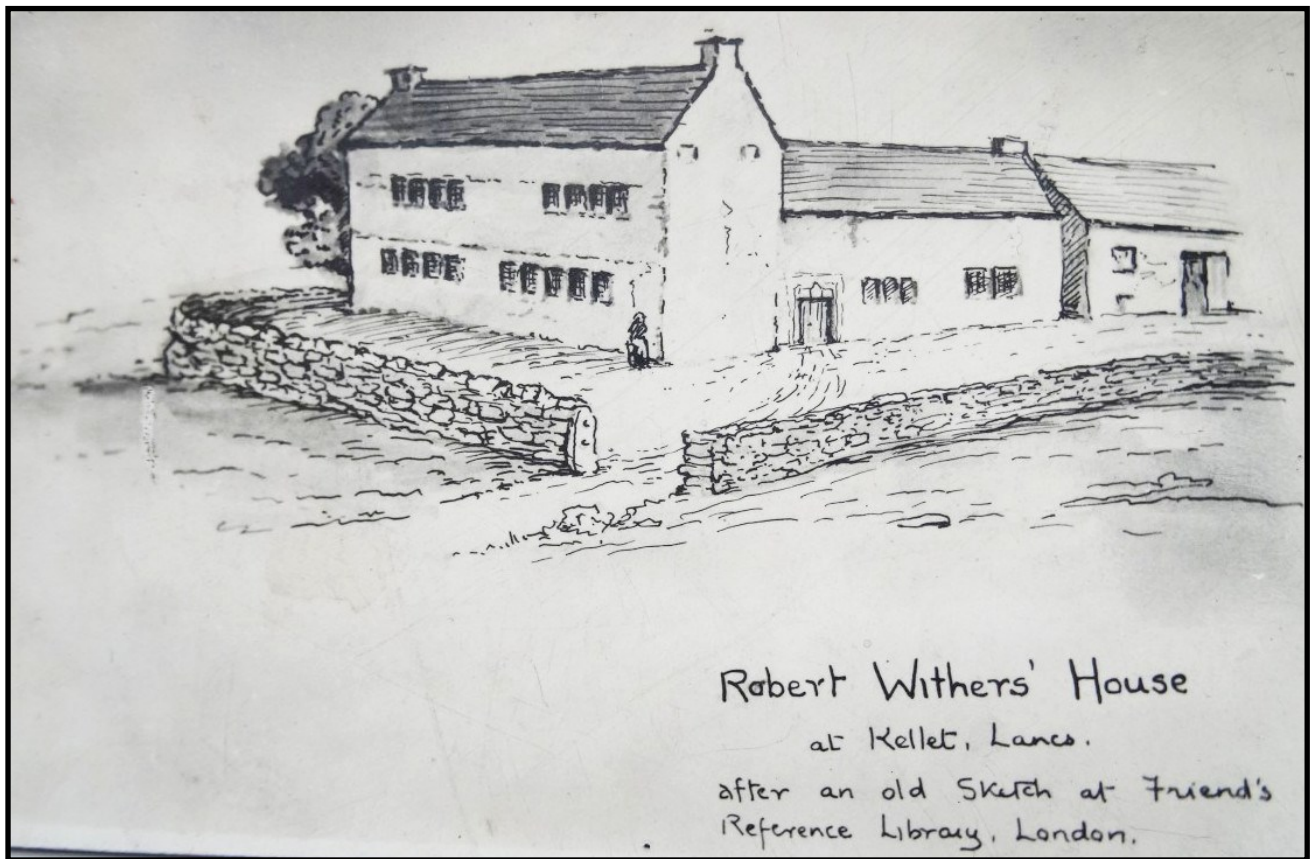 Robert Withers' House
at Kellet, Lancs.
after an old Sketch at Friend's
Reference Library, London.